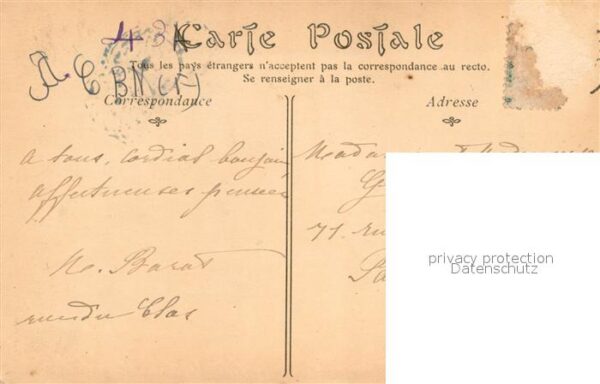 434
Carte Postale
A. C BM(r)
Tous les pays étrangers n'acceptent pas la correspondance au recto.
Se renseigner à la poste.
Correspondance
Adresse
a tous, cordial bonjour
affectueuses pensées
M. Barat
rue du Clos
Madame
71. rue
privacy protection
Datenschutz